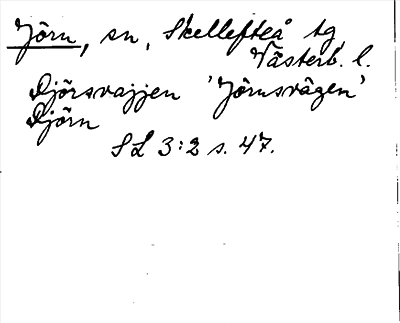 Jörn, sn, Skellefteå tg,
Västerb. l.
Djörsvajjen 'Jörnsvägen'
Djörn
SL 3:2 s. 47.